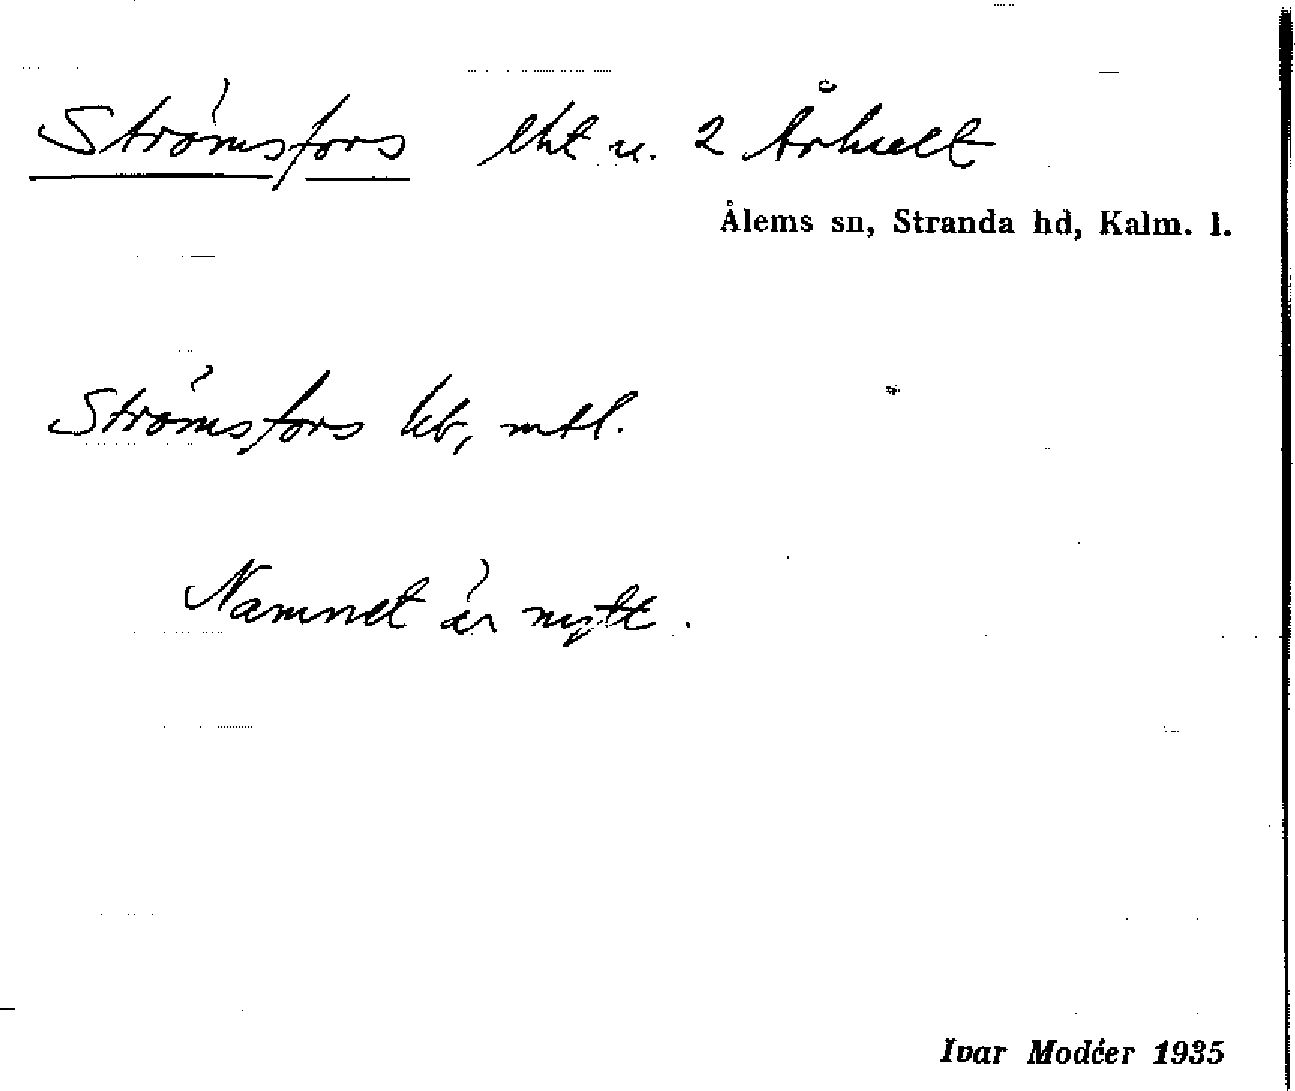 Strömsfors lht u. 2 Århult
Ålems sn, Stranda hd, Kalm. l.
Strömsfors kb, mtl.
Namnet är nytt.
Ivar Modéer 1935